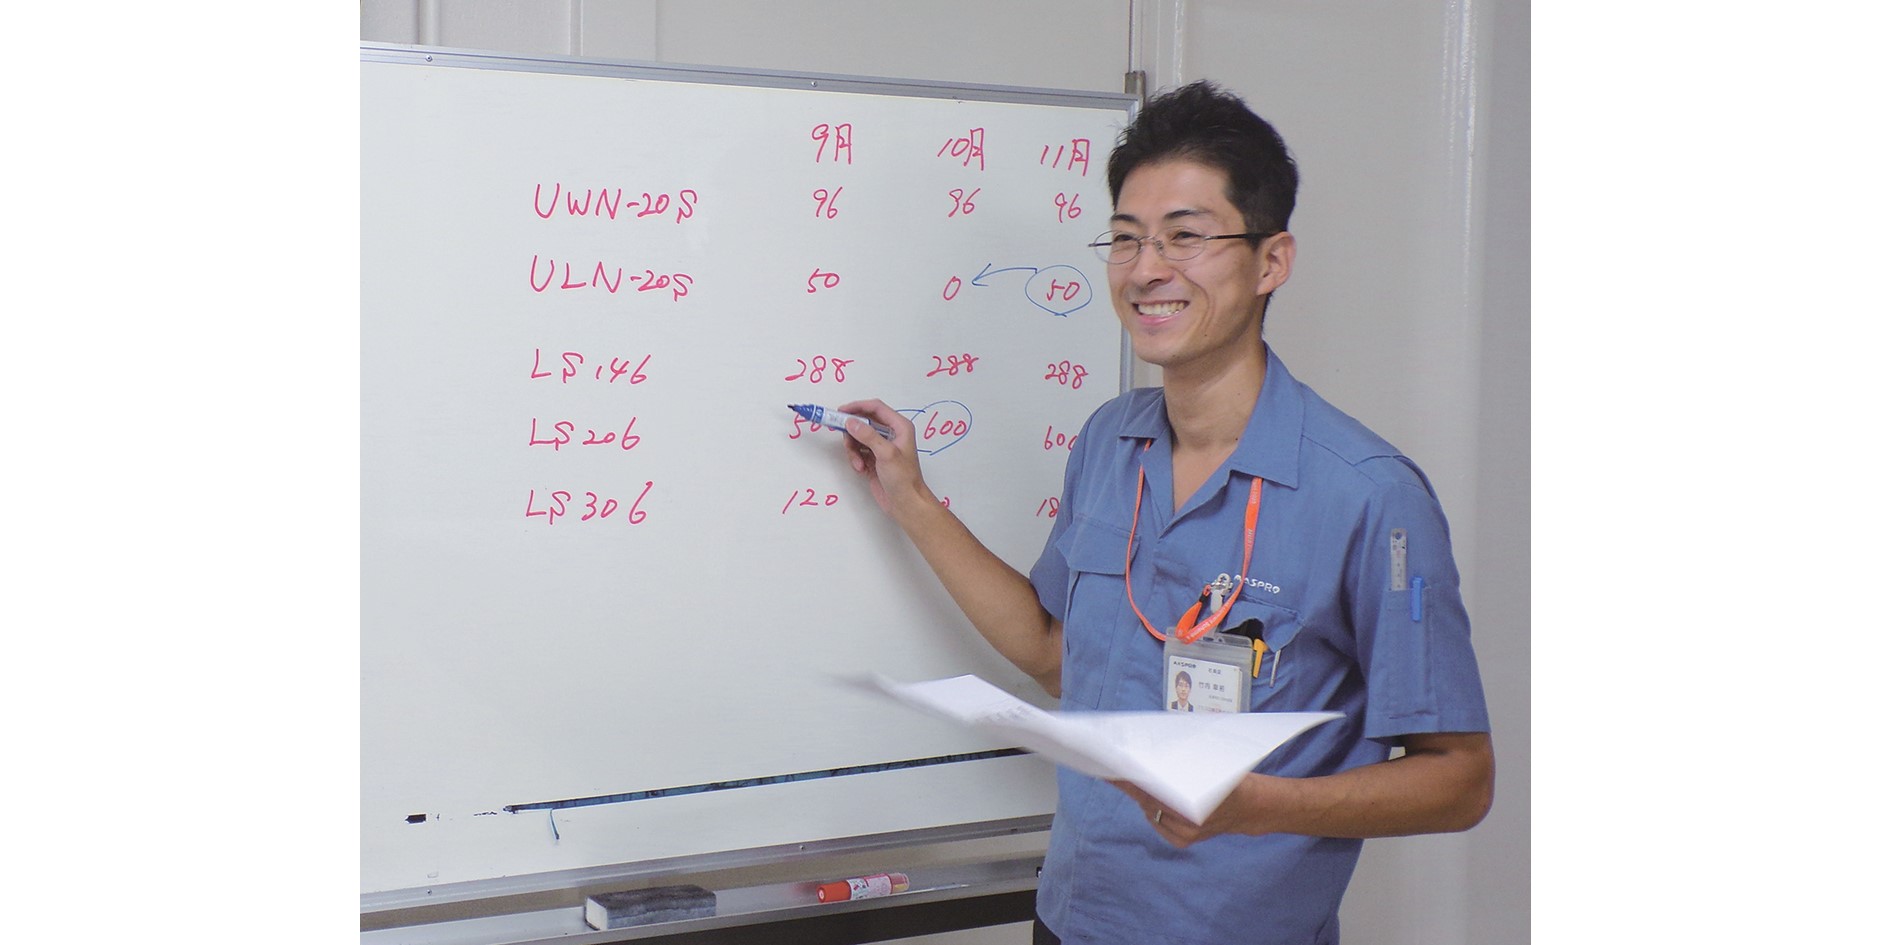 9月 10月 11月
UWN-20S 96 96 96
ULN-20S 50 0 50
LS146 288 288 288
LS206 600
LS306 120
MASPRO
MASPRO 社員証
竹内